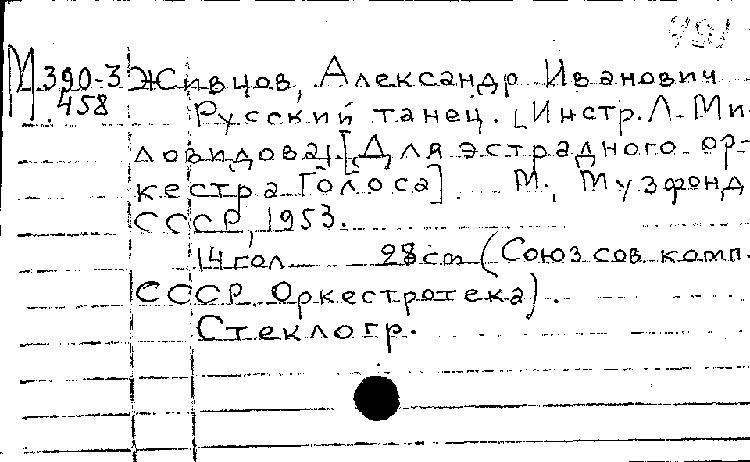 М 390-3 Живцов, Александр Иванович
458 Русский танец. [Инстр. Л. Ми-
ловидова]. [Для эстрадного ор-
кестра. Голоса]. М., Музфонд
СССР, 1953.
14 гол. 28 cm (Союз сов. комп.
СССР. Оркестротека).
Стеклогр.